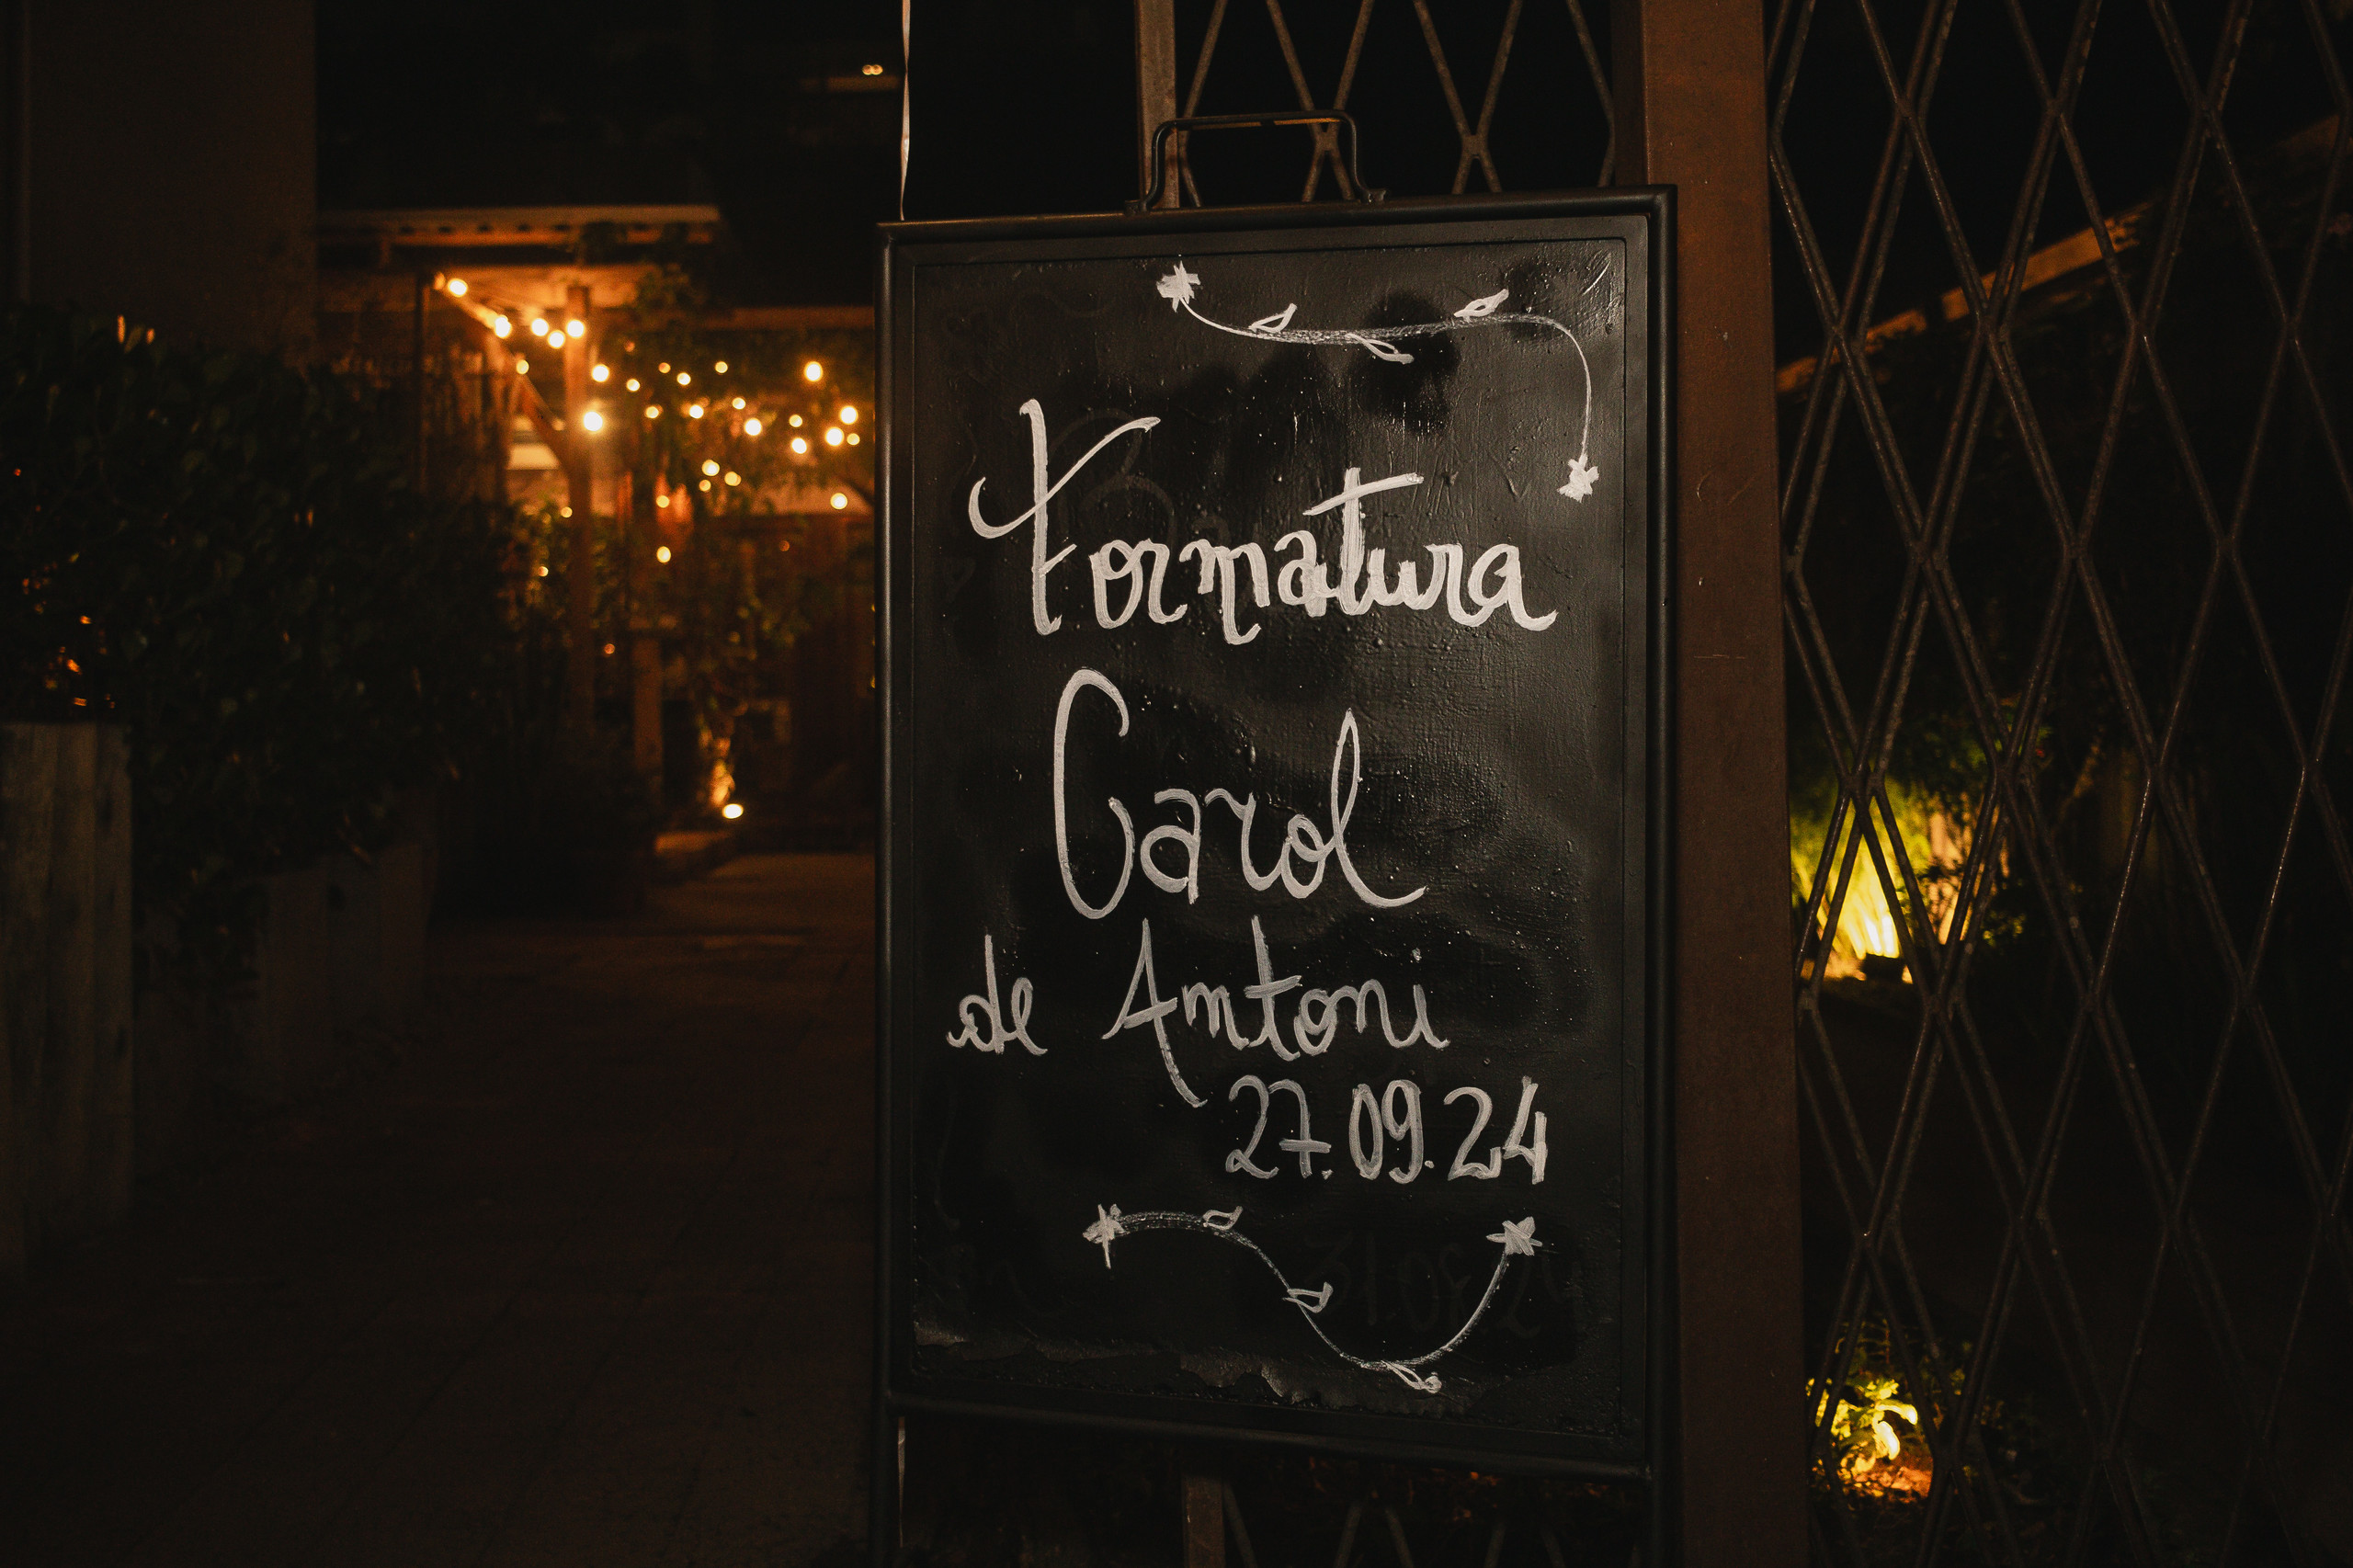 Formatura
Carol
de Antoni
27.09.24